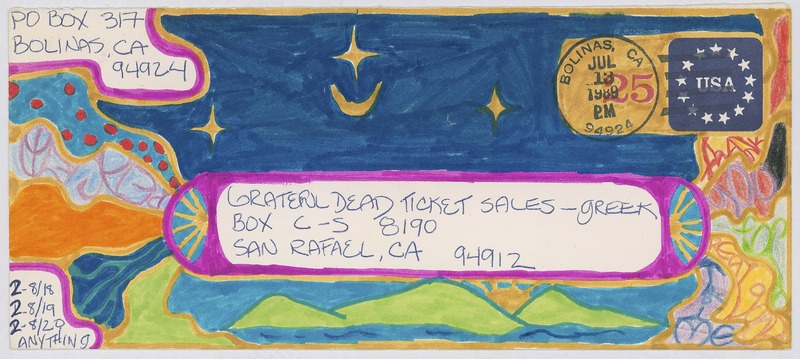 PO BOX 317
BOLINAS, CA
94924
BOLINAS, CA
JUL
13
1989
PM
94924
25
USA
GRATEFUL DEAD TICKET SALES - GREEK
BOX C-S 8190
SAN RAFAEL, CA 94912
2-8/18
2-8/19
2-8/20
ANYTHING